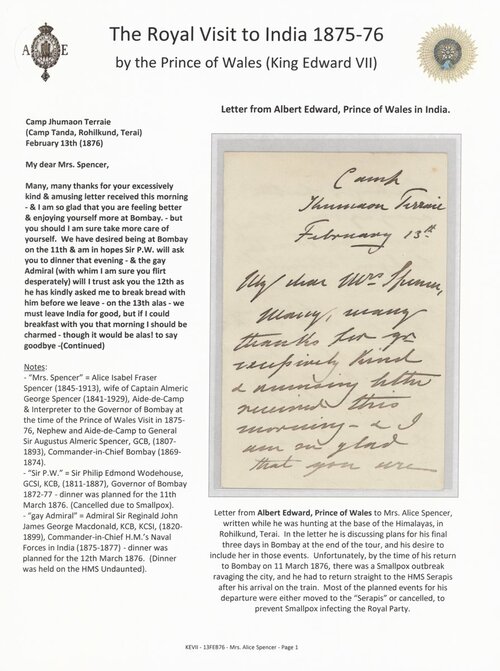 The Royal Visit to India 1875-76
by the Prince of Wales (King Edward VII)
A E
Letter from Albert Edward, Prince of Wales in India.
Camp Jhumaon Terraie
(Camp Tanda, Rohilkund, Terai)
February 13th (1876)
My dear Mrs. Spencer,
Many, many thanks for your excessively
kind & amusing letter received this morning
- & I am so glad that you are feeling better
& enjoying yourself more at Bombay. - but
you should I am sure take more care of
yourself.  We have desired being at Bombay
on the 11th & am in hopes Sir P.W. will ask
you to dinner that evening - & the gay
Admiral (with whim I am sure you flirt
desperately) will I trust ask you the 12th as
he has kindly asked me to break bread with
him before we leave - on the 13th alas - we
must leave India for good, but if I could
breakfast with you that morning I should be
charmed - though it would be alas! to say
goodbye -(Continued)
Notes:
- "Mrs. Spencer" = Alice Isabel Fraser
Spencer (1845-1913), wife of Captain Almeric
George Spencer (1841-1929), Aide-de-Camp
& Interpreter to the Governor of Bombay at
the time of the Prince of Wales Visit in 1875-
76, Nephew and Aide-de-Camp to General
Sir Augustus Almeric Spencer, GCB, (1807-
1893), Commander-in-Chief Bombay (1869-
1874).
- "Sir P.W." = Sir Philip Edmond Wodehouse,
GCSI, KCB, (1811-1887), Governor of Bombay
1872-77 - dinner was planned for the 11th
March 1876. (Cancelled due to Smallpox).
- "gay Admiral" = Admiral Sir Reginald John
James George Macdonald, KCB, KCSI, (1820-
1899), Commander-in-Chief H.M.'s Naval
Forces in India (1875-1877) - dinner was
planned for the 12th March 1876.  (Dinner
was held on the HMS Undaunted).
Camp
Jhumaon Terraie
February 13th
My dear Mrs Spencer,
Many, many
thanks for yr
excessively kind
& amusing letter
received this
morning - & I
am so glad
that you are
Letter from Albert Edward, Prince of Wales to Mrs. Alice Spencer,
written while he was hunting at the base of the Himalayas, in
Rohilkund, Terai.  In the letter he is discussing plans for his final
three days in Bombay at the end of the tour, and his desire to
include her in those events.  Unfortunately, by the time of his return
to Bombay on 11 March 1876, there was a Smallpox outbreak
ravaging the city, and he had to return straight to the HMS Serapis
after his arrival on the train.  Most of the planned events for his
departure were either moved to the "Serapis" or cancelled, to
prevent Smallpox infecting the Royal Party.
KEVII - 13FEB76 - Mrs. Alice Spencer - Page 1